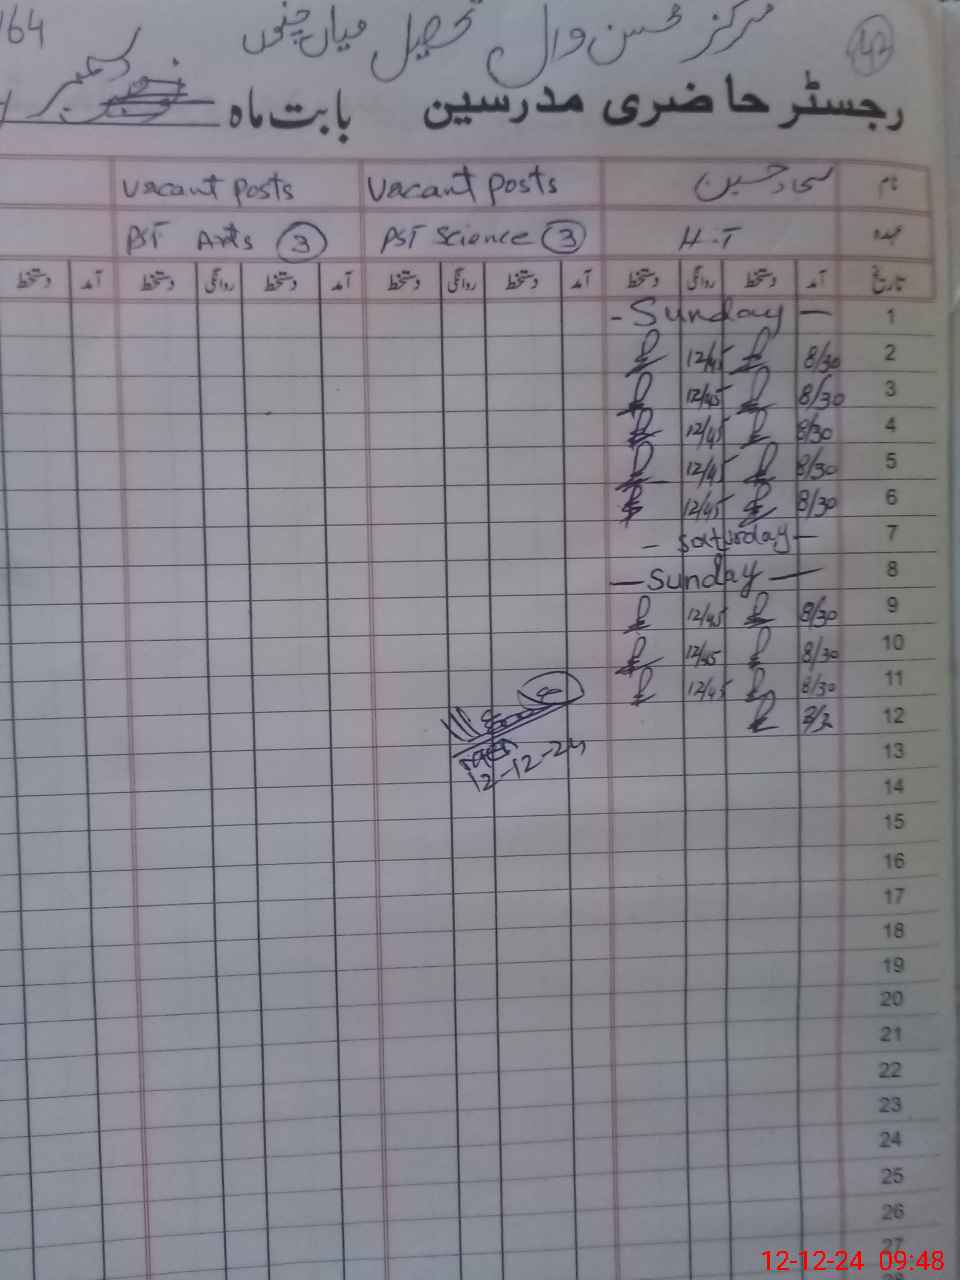 164
مرکز محسن وال تحصیل میاں چنوں
42
رجسٹر حاضری مدرسین بابت ماہ دسمبر
نام سجاد حسین Vacant Posts Vacant Posts
عہدہ H.T PST Science 3 PST Arts 3
تاریخ آمد دستخط روانگی دستخط آمد دستخط روانگی دستخط آمد دستخط روانگی دستخط آمد دستخط
1 - Sunday -
2 8/30 12/45
3 8/30 12/45
4 8/30 12/45
5 8/30 12/45
6 8/30 12/45
7 - Saturday -
8 - Sunday -
9 8/30 12/45
10 8/30 12/45
11 8/30 12/45
12
13
12-12-24
14
15
16
17
18
19
20
21
22
23
24
25
26
27
12-12-24 09:48